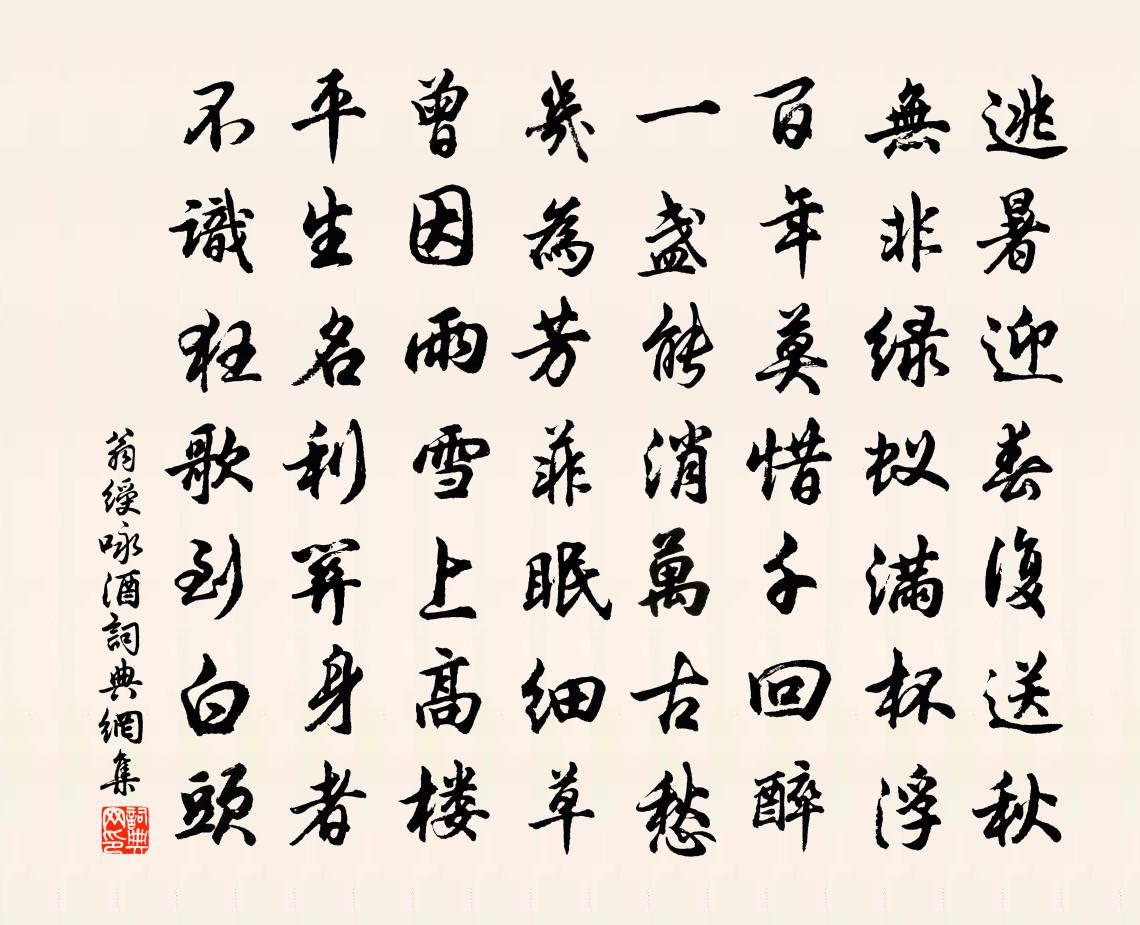 逃暑迎春復送秋
無非绿蚁满杯浮
百年莫惜千回醉
一盏能消萬古愁
幾為芳菲眠细草
曾因雨雪上高楼
平生名利關身者
不識狂歌到白頭
翁綬咏酒詞典網集
詞典网印